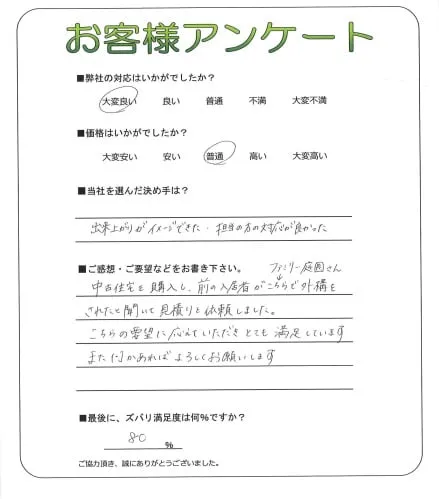 お客様アンケート
■弊社の対応はいかがでしたか？
大変良い 良い 普通 不満 大変不満
■価格はいかがでしたか？
大変安い 安い 普通 高い 大変高い
■当社を選んだ決め手は？
出来上がりがイメージできた・担当の方の対応が良かった
■ご感想・ご要望などをお書き下さい。
ファミリー庭園さん
中古住宅を購入し、前の入居者がこちらで外構を
されたと聞いて見積りを依頼しました。
こちらの要望に応えていただきとても満足しています
また何かあればよろしくお願いします
■最後に、ズバリ満足度は何%ですか？
80 %
ご協力頂き、誠にありがとうございました。